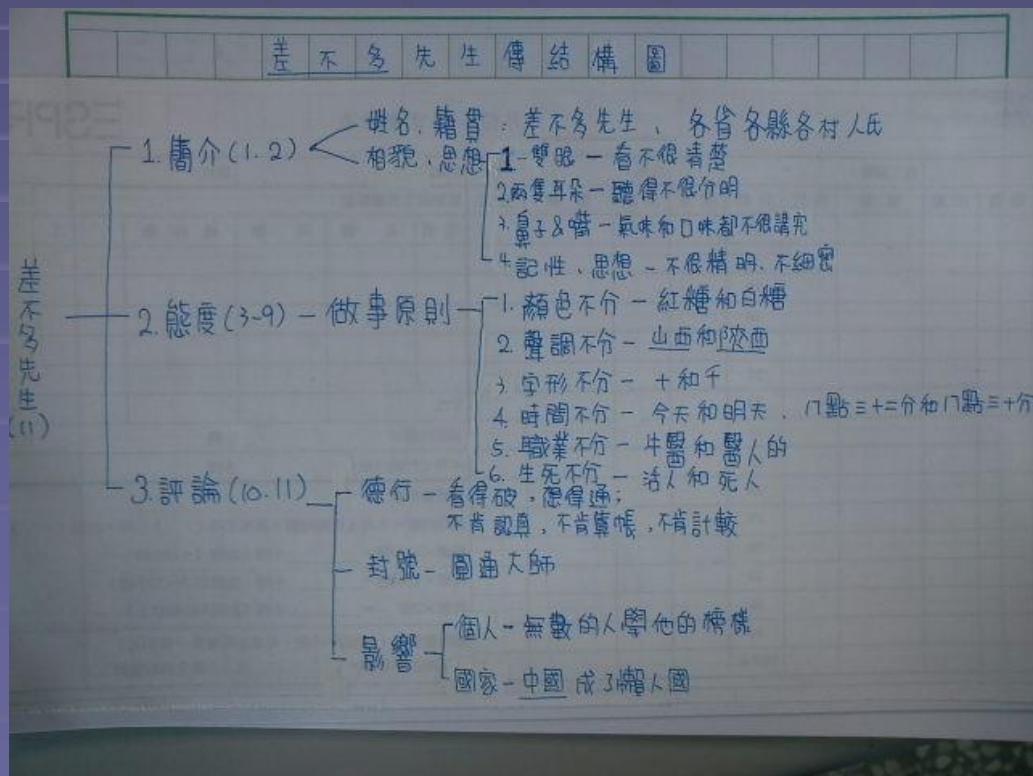 差不多先生傳結構圖
差不多先生(11)
1.簡介(1.2)
姓名.籍貫:差不多先生、各省各縣各村人氏
相貌、思想
1.雙眼-看不很清楚
2.兩隻耳朵-聽得不很分明
3.鼻子&嘴-氣味和口味都不很講究
4.記性、思想-不很精明.不細密
2.態度(3-9)-做事原則
1.顏色不分-紅糖和白糖
2.聲調不分-山西和陝西
3.字形不分-十和千
4.時間不分-今天和明天、八點三十二分和八點三十分
5.職業不分-牛醫和醫人的
6.生死不分-活人和死人
3.評論(10.11)
德行-看得破,想得通;
不肯認真,不肯算帳,不肯計較
封號-圓通大師
影響
個人-無數的人學他的榜樣
國家-中國成了懶人國